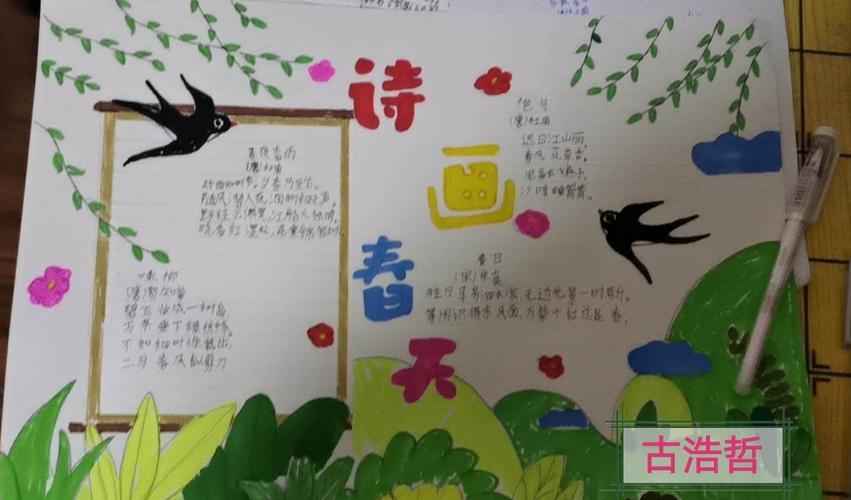 诗
画
春
天
春夜喜雨
(唐)杜甫
好雨知时节,当春乃发生。
随风潜入夜,润物细无声。
野径云俱黑,江船火独明。
晓看红湿处,花重锦官城。
咏柳
(唐)贺知章
碧玉妆成一树高
万条垂下绿丝绦
不知细叶谁裁出
二月春风似剪刀
绝句
(唐)杜甫
迟日江山丽,
春风花草香。
泥融飞燕子,
沙暖睡鸳鸯。
春日
(宋)朱熹
胜日寻芳泗水滨,无边光景一时新。
等闲识得东风面,万紫千红总是春。
古浩哲